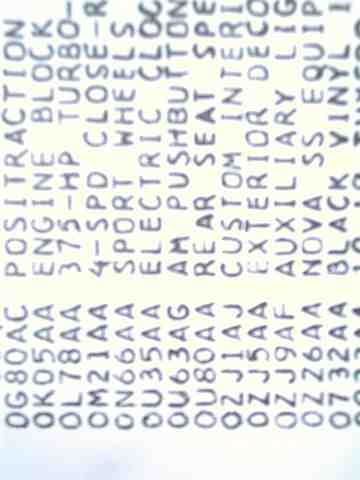 0G80AC POSITRACTION
0K05AA ENGINE BLOCK
0L78AA 375-HP TURBO-
0M21AA 4-SPD CLOSE-R
0N66AA SPORT WHEELS
0U35AA ELECTRIC CLOC
0U63AG AM PUSHBUTTON
0U80AA REAR SEAT SPE
0ZJ1AJ CUSTOM INTERI
0ZJ5AA EXTERIOR DECO
0ZJ9AF AUXILIARY LIG
0ZZ6AA NOVA SS EQUIP
0732AA BLACK VINYL I